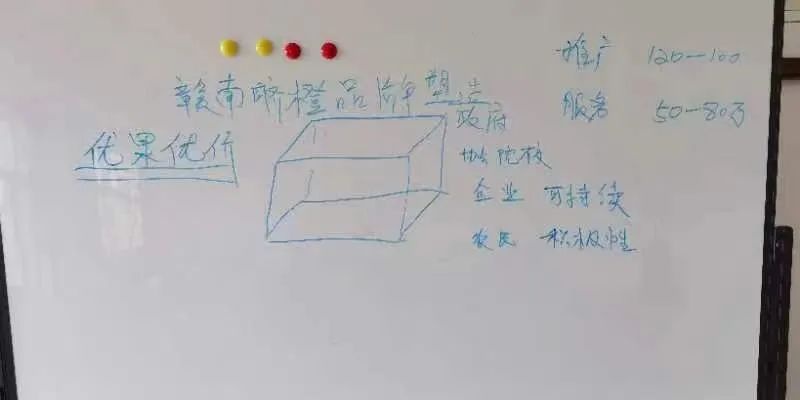 赣南脐橙品牌塑造
优果优价
政府
协会院校
企业 可持续
农民 积极性
推广 120-100
服务 50-80万